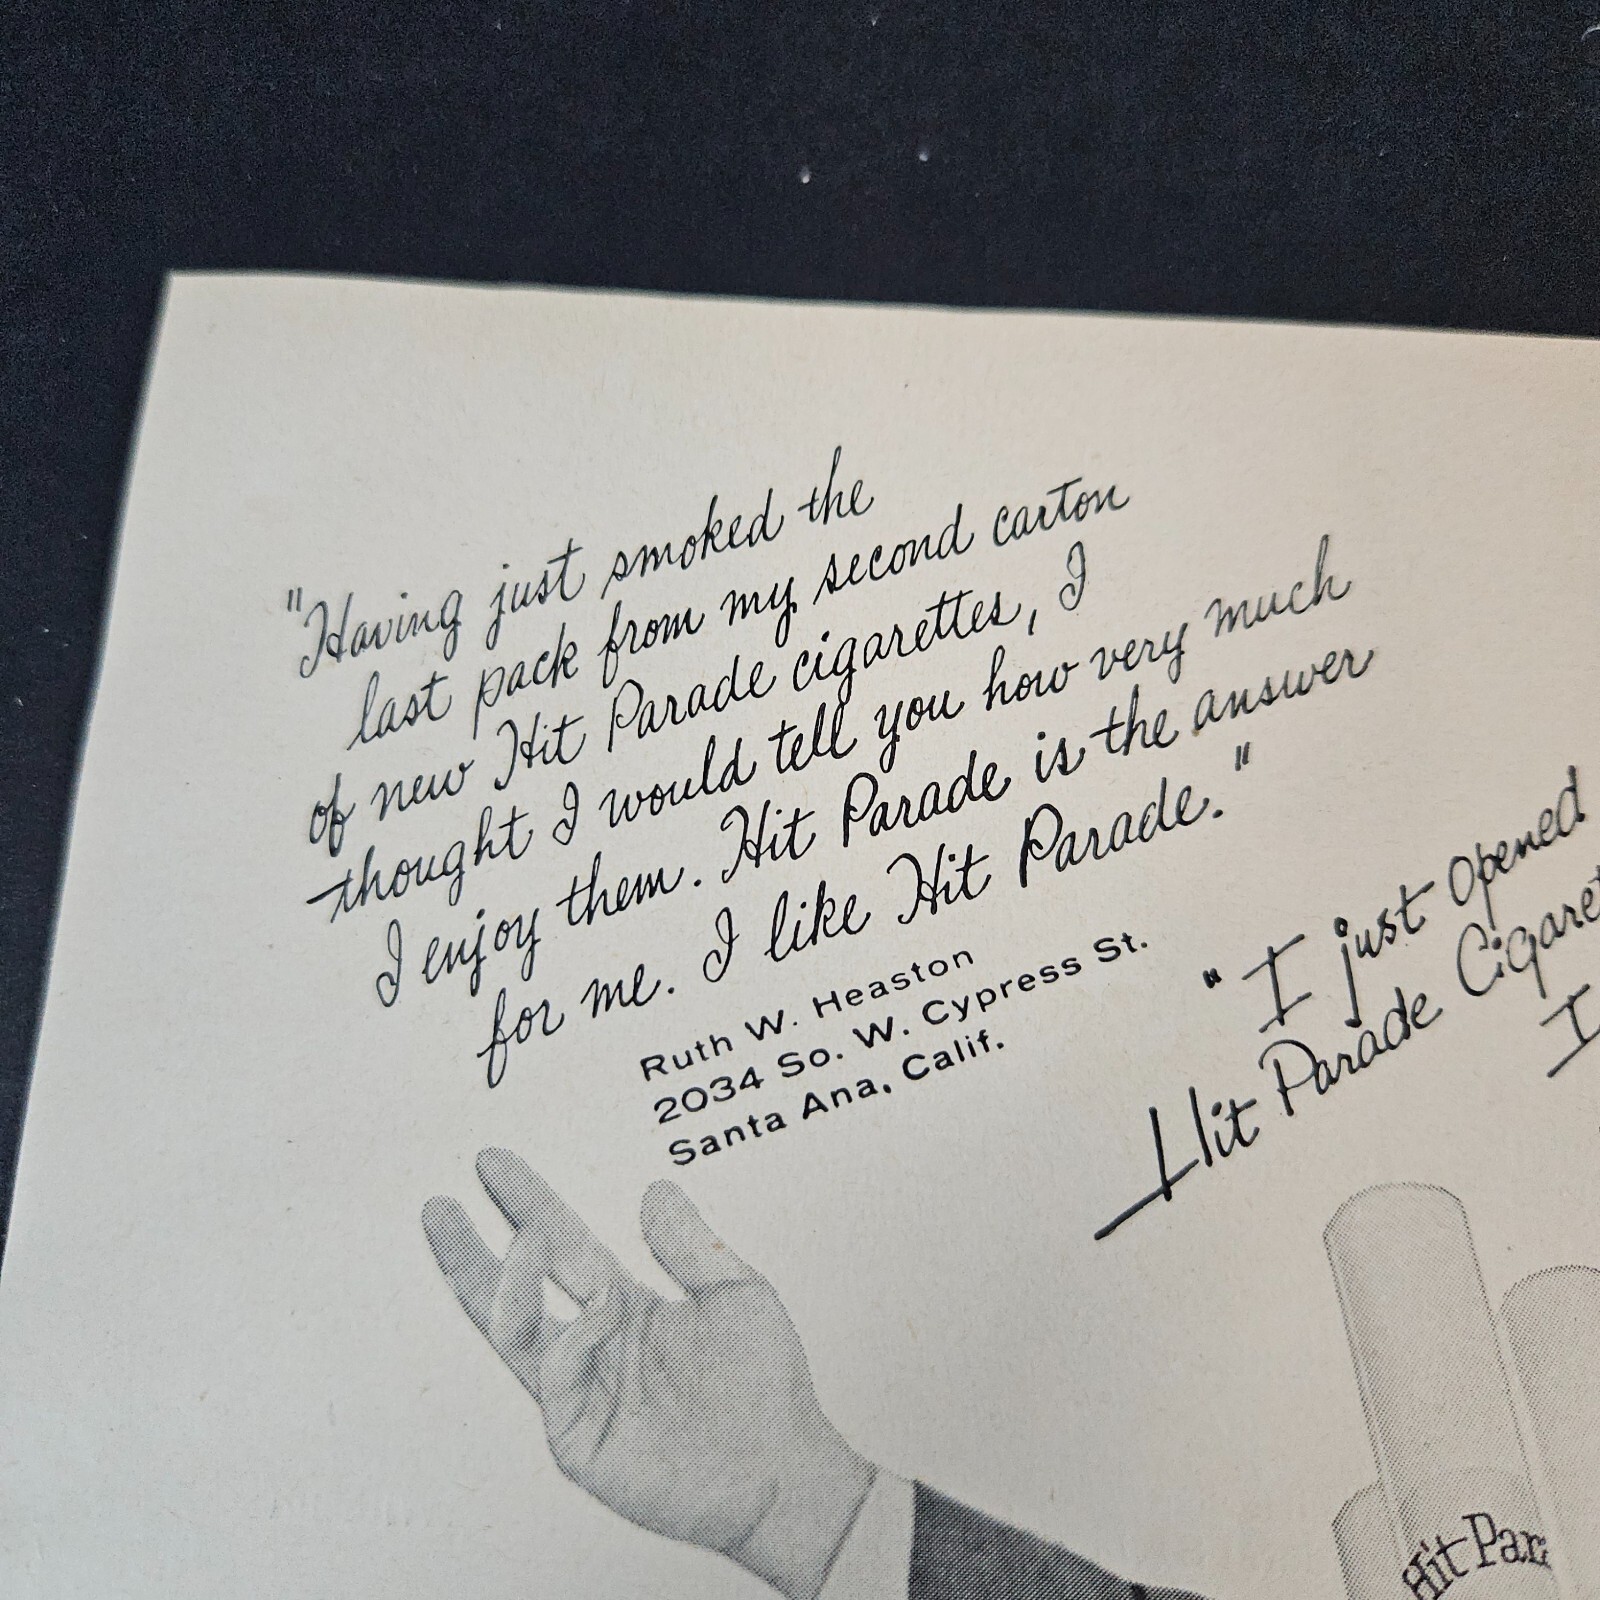 "Having just smoked the
last pack from my second carton
of new Hit Parade cigarettes, I
thought I would tell you how very much
I enjoy them. Hit Parade is the answer
for me. I like Hit Parade."
Ruth W. Heaston
2034 So. W. Cypress St.
Santa Ana, Calif.
"I just opened
Hit Parade Cigaret
I
Hit Par